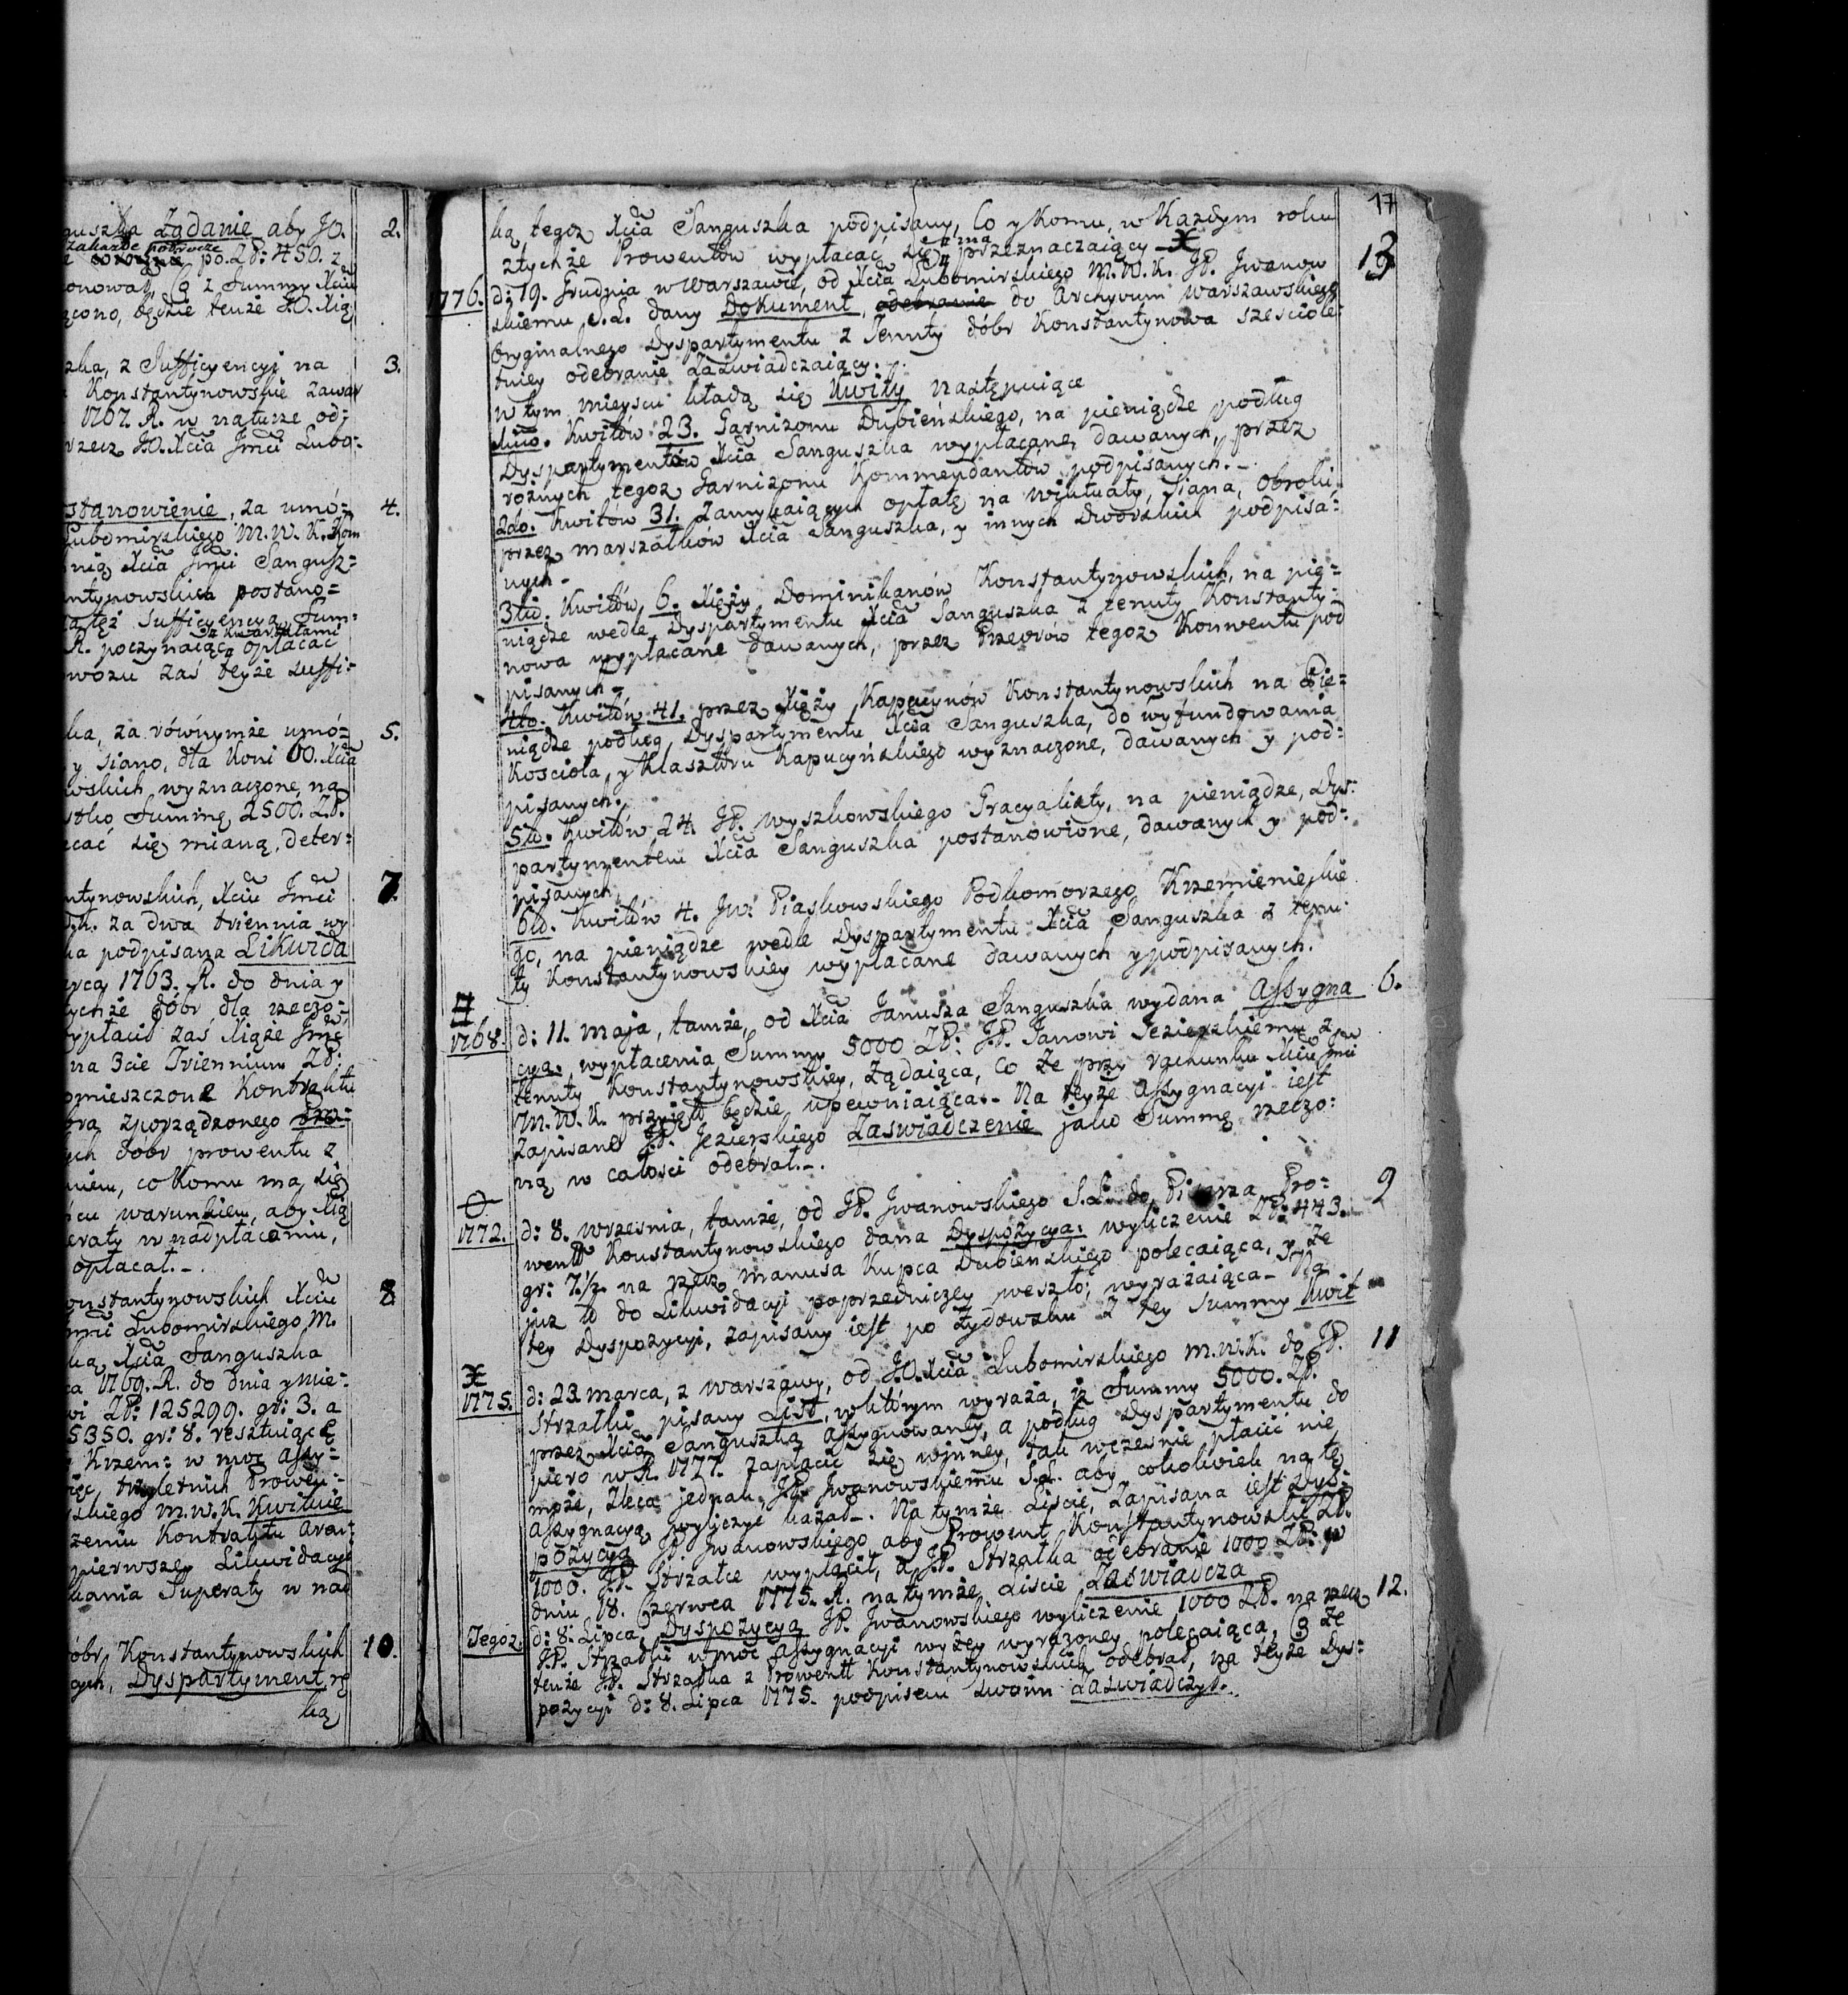 nuszka Żądanie aby JO. 2.
zakażde półrocze
corocznie po ZP: 450. z
onował, Co z Summy Xciu
ącono, będzie tenże J.O. Xią
zka, z Sufficyencyi na 3.
Konstantynowskie zawar
1767. R. w naturze od:
rzecz J.O. Xcia Jmci Lubo:
stanowienie, za umó: 4.
Lubomirskiego M. W. K. Kom
nią Xcia Jmci Sangusz=
antynowskich postano=
także Sufficyencyą Sum:
kwartałami
R. poczynaiąc opłacać
wozu zaś teyże suffi:
ka, za równymże umó: 5.
y siano, dla Koni OO. Xcia
wskich wyznaczone, na
stko Summę 2500. ZP.
cać się mianą, deter:
ntynowskich, Xciu Jmci 7.
W.K. za dwa triennia wy
ka podpisana Likwida
arca 1763. R. do dnia y
tychże dóbr dla rzeczo:
wypłacił zaś Xiąże Jmć
na 3cie Triennium ZP:
omieszczone Kontraktu
bra zporządzonego
ych dóbr prowentu z
niem, co komu ma się
ńcu warunkiem, aby Xią
eraty w nadpłaceniu,
opłacał._.
onstantynowskich Xciu 8
Jmci Lubomirskiego M.
ką Xcia Sanguszka
ca 1769. R. do dnia y mie:
wi ZP: 125299. gr: 3. a
5350. gr: 8. resztuiącę
Krzem: w moc assy=
ięć trzyletnich Prowen:
skiego M.W.K. Kwituie
zeniu Kontraktu aren:
pierwszey Likwidacyi
kania Superaty w nad
óbr Konstantynowskich 10.
cych, Dyspartyment rę
ką
17
ką tegoż Xcia Sanguszka podpisany, Co y Komu, w Każdym roku
ztychże Prowentów wypłacać się ma przeznaczaiący X
1776. d: 19. Grudnia w Warszawie, od Xcia Lubomirskiego M.W.K. JP. Jwanow 13
skiemu S.L. dany Dokument, odebranie do Archyvum Warszawskiego
Oryginalnego Dyspartymentu z Tenuty dóbr Konstantynowa sześciole:
tniey odebranie Zaświadczaiący._.
W tym mieyscu kładą się Kwity następuiące
1mo. Kwitów 23. Garnizonu Dubieńskiego, na pieniądze podług
Dyspartymentów Xcia Sanguszka wypłacane, dawanych, przez
rożnych tegoż Garnizonu Kommendantów podpisanych._.
2do. Kwitów 31. Zamykaiących opłatę na wiktuały, siana, obroki
przez marszałków Xcia Sanguszka, y innych dworskich podpisa:
nych.
3tio. Kwitów 6. Xięży Dominikanów Konstantynowskich, na pie=
niądze wedle Dyspartymentu Xcia Sanguszka z tenuty Konstanty:
nowa wypłacane dawanych, przez Przeorów tegoż Konwentu pod
pisanych.
4to. Kwitów 41. przez Xięży Kapucynów Konstantynowskich na Pie=
niądze podług Dyspartymentu Xcia Sanguszka, do wyfundowania
Kościoła y Klasztoru Kapucyńskiego wyznaczone, dawanych y pod:
pisanych.
5to. Kwitów 24. JP. Wyszkowskiego Gracyalisty, na pieniądze, Dys:
partymentem Xcia Sanguszka postanowione, dawanych y pod:
pisanych.
6to. Kwitów 4. JW: Piaskowskiego Podkomorzego Krzemienieckie
go, na pieniądze wedle Dyspartymentu Xcia Sanguszka z tenu:
ty Konstantynowskiey wypłacane dawanych y podpisanych.
#
1768. d: 11. maja, tamże, od Xcia Janusza Sanguszka wydana Assygna 6.
cya: wypłacenia Summy 5000 ZP: JP. Janowi Jezierskiemu z
tenuty Konstantynowskiey, Żądaiąca, Co że przy rachunku Xciu Jmci
M.W.K. przyięto będzie upewniaiąca._ Na teyże Assygnacyi iest
Zapisane JP. Jezierskiego Zaswiadczenie jako Summę rzeczo:
ną w całości odebrał._.
1772. d: 8. Wrzesnia, tamże, od JP. Jwanowskiego S.L. do Pisarza Pro= 9
wentu Konstantynowskiego dana Dyspozycya: wyliczenie ZP: 443.
gr: 7.½. na rzecz Manusa Kupca Dubieńskiego polecaiąca, y że
już to do Likwidacyi poprzedniczey weszło; wyrażaiąca._ Na
tey Dyspozycyi, zapisany iest po Żydowsku z tey Summy Kwit
X
1775. d: 23. marca, z Warszawy, od J.O. Xcia Lubomirskiego M.W.K. do JP. 11
Strzałki pisany List, w którym wyraża, iż Summy 5000. ZP.
przez Xcia Sanguszkę assygnowaney, a podług Dyspartymentu do
piero w R. 1777. zapłacić się winney, tak wczesnie płacić nie
może, Zleca jednak JP. Jwanowskiemu S.L. aby cokolwiek na tę
assygnacyą wyliczyć kazał._ Na tymże Liscie, Zapisana iest Dys:
pozycya JP. Jwanowskiego aby Prowent Konstantynowski ZP.
1000. JP. Strzałce wypłacił, a JP. Strzałka odebranie 1000 ZP: w
dniu 18. Czerwca 1775. R. na tymże Liscie Zaświadcza
Tegoż. d: 8. Lipca, Dyspozycya JP. Jwanowskiego wyliczenie 1000 ZP. na rzecz 12.
JP. Strzałki w moc Assygnacyi wyżey wyrażoney polecaiąca, Co że
tenże JP. Strzałka z Prowentu Konstantynowskich odebrał, na teyże Dys:
pozycyi d: 8. Lipca 1775. podpisem swoim Zaświadczył.